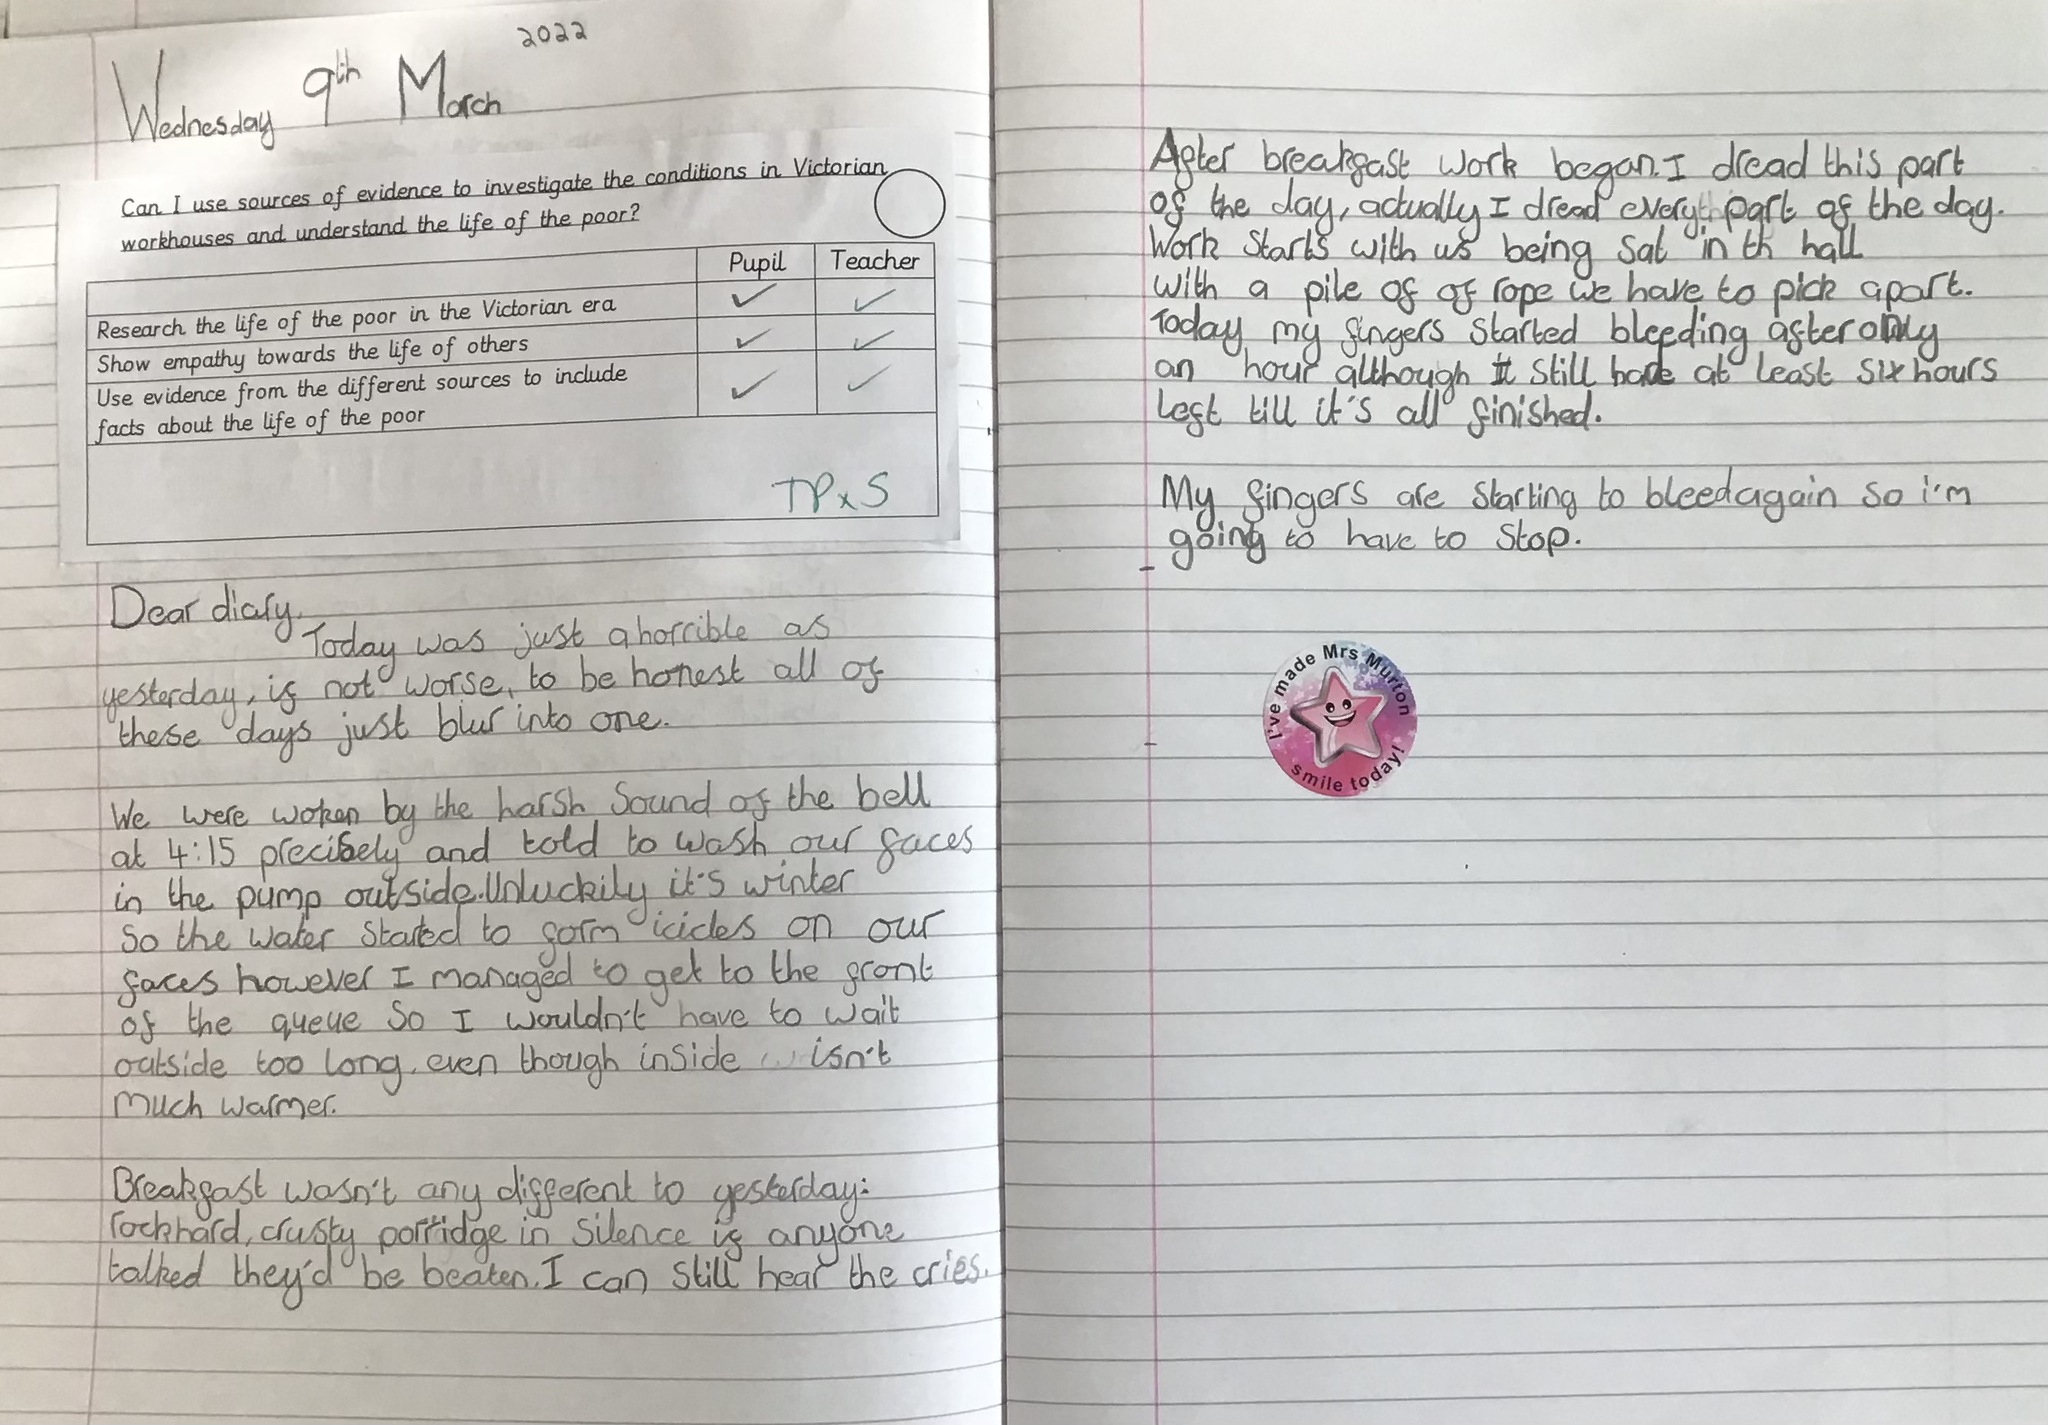 2022
Wednesday 9th March
Can I use sources of evidence to investigate the conditions in Victorian
workhouses and understand the life of the poor?
Pupil Teacher
Research the life of the poor in the Victorian era ✓ ✓
Show empathy towards the life of others ✓ ✓
Use evidence from the different sources to include ✓ ✓
facts about the life of the poor
TPxS
Dear diary,
Today was just a horrible as
yesterday, if not worse, to be honest all of
these days just blur into one.
We were woken by the harsh sound of the bell
at 4:15 precisely and told to wash our faces
in the pump outside. Unluckily it's winter
so the water started to form icicles on our
faces however I managed to get to the front
of the queue so I wouldn't have to wait
outside too long, even though inside isn't
much warmer.
Breakfast wasn't any different to yesterday:
rockhard, crusty porridge in silence if anyone
talked they'd be beaten. I can still hear the cries.
After breakfast work began. I dread this part
of the day, actually I dread every part of the day.
Work starts with us being sat in th hall
with a pile of of rope we have to pick apart.
Today my fingers started bleeding after only
an hour although it still hade at least six hours
left till it's all finished.
My fingers are starting to bleed again so i'm
going to have to stop.
I've made Mrs Murton
smile today!